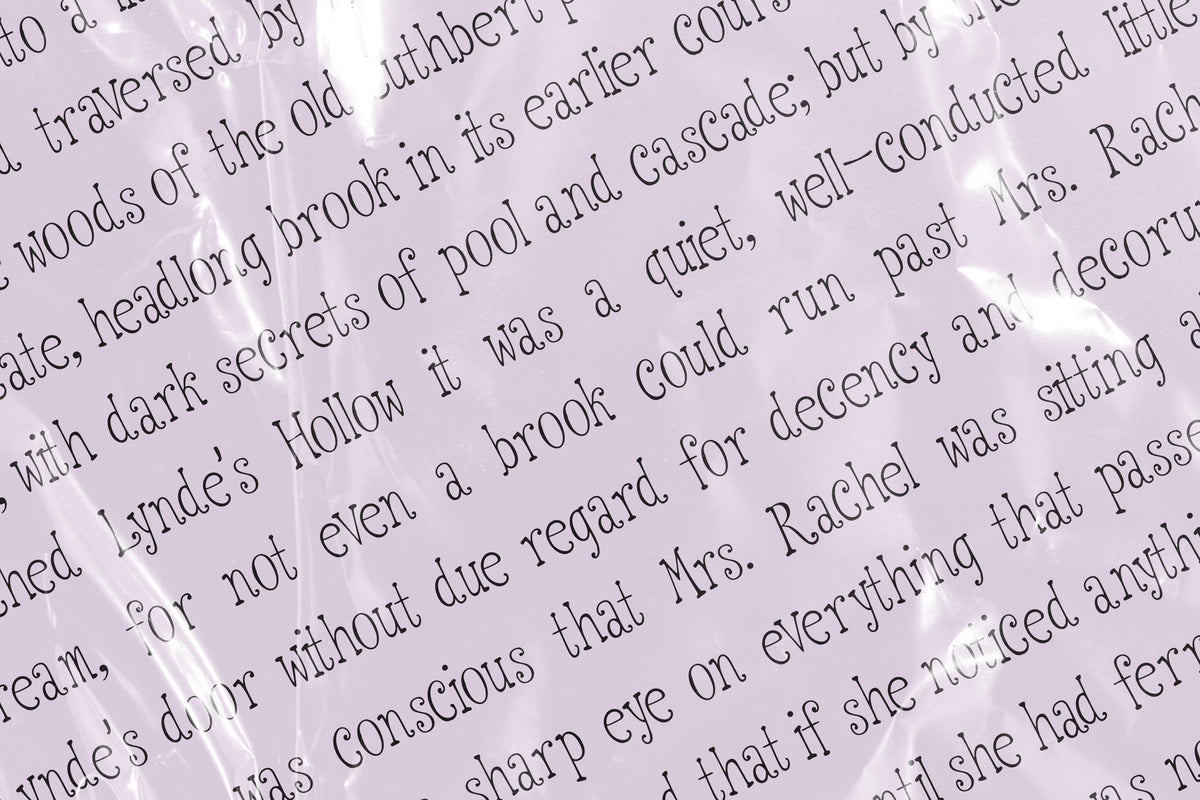 to a
traversed by
woods of the old Cuthbert p
ate, headlong brook in its earlier cours
, with dark secrets of pool and cascade; but by the
ched Lynde's Hollow it was a quiet, well–conducted little
ream, for not even a brook could run past Mrs. Rach
ynde's door without due regard for decency and decoru
was conscious that Mrs. Rachel was sitting a
sharp eye on everything that passe
d that if she noticed anythi
ntil she had ferr
as no